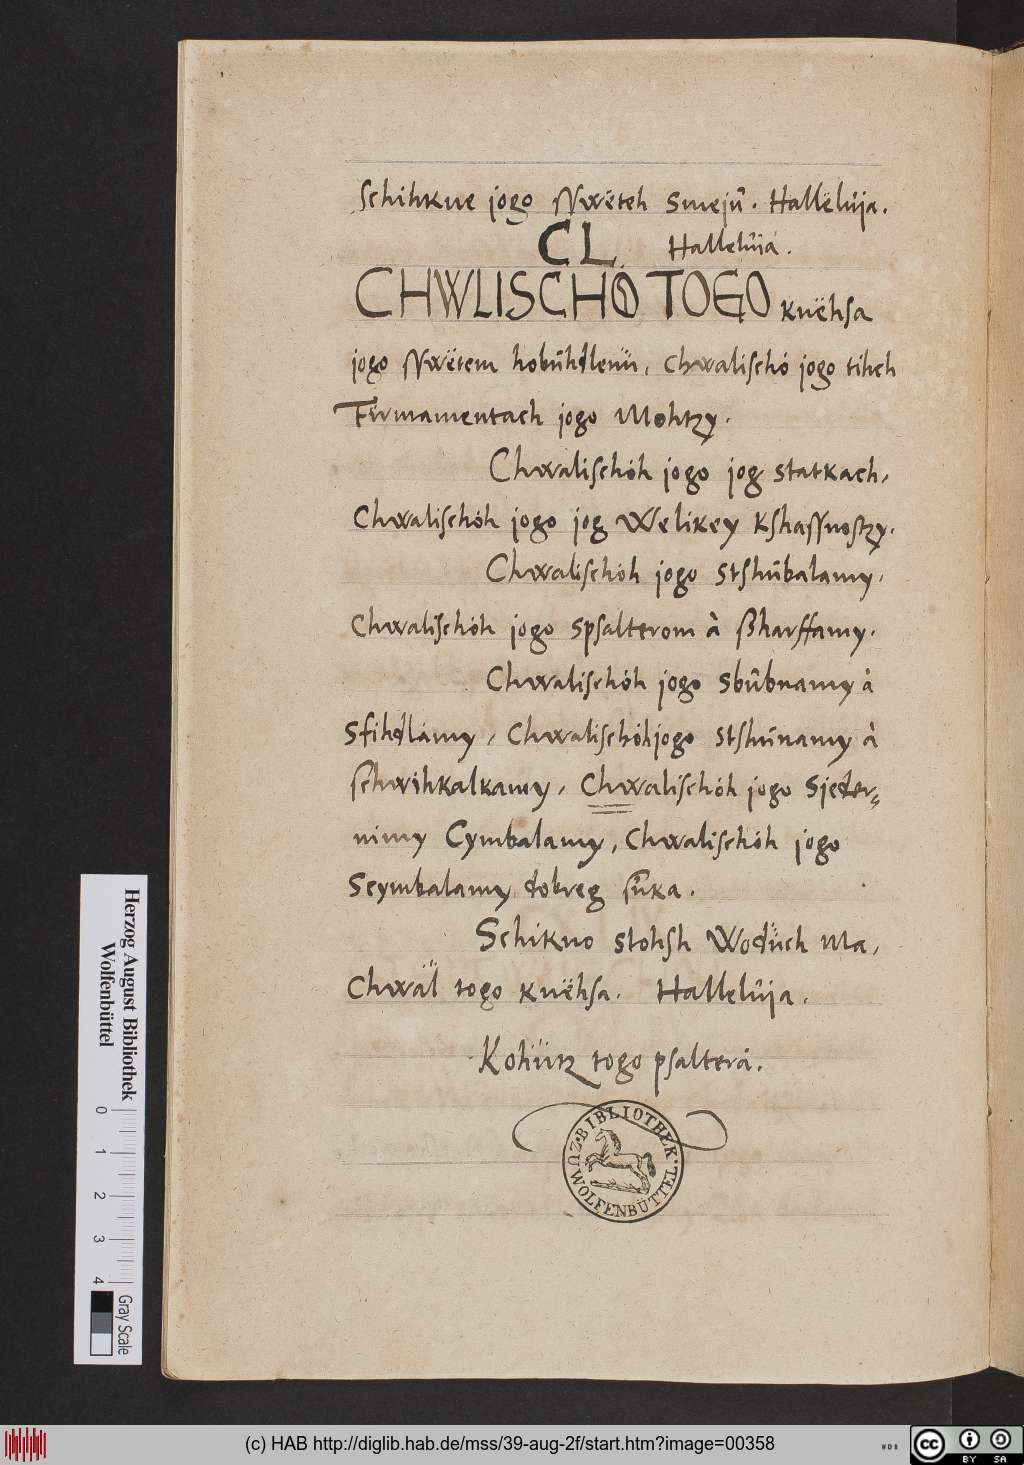 Schihkue jogo Nwëteh Smejü. Hallëlüja.
CL Hallelüia.
CHWLISCHO TOGO knëhsa
jogo Nwëtem hobühdlenü, Chwalischó jogo tihch
Firmamentach jogo Mohtzy.
Chwalischóh jogo jog statkach,
Chwalischóh jogo jog Welikey Kshassnostzy.
Chwalischóh jogo stshübalamy,
Chwalischóh jogo Spsalterom à ßharffamy.
Chwalischóh jogo sbübnamy à
Sfihdlámy, Chwalischóh jogo stshünamy à
schwihkalkamy, Chwalischóh jogo Sjeder-
nimy Cymbalamy, Chwalischóh jogo
Scymbalamy dobreg süka.
Schikno stohsh Wodüch Ma,
Chwäl togo knëhsa. Hallelüja.
Kohütz togo psalterá.
BIBLIOTHEK
ZU WOLFENBÜTTEL
Herzog August Bibliothek
Wolfenbüttel
0 1 2 3 4
Gray Scale
(c) HAB http://diglib.hab.de/mss/39-aug-2f/start.htm?image=00358
WDB
cc BY SA